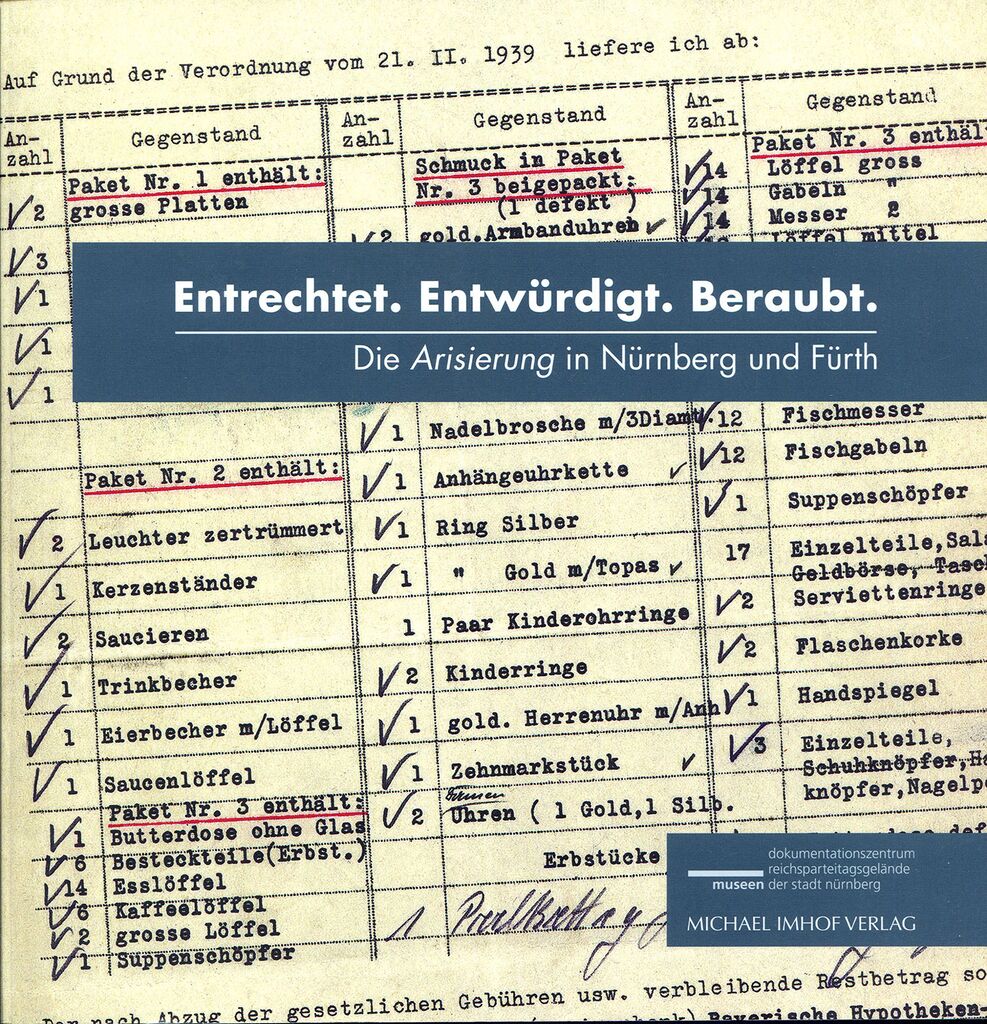 Auf Grund der Verordnung vom 21. II. 1939 liefere ich ab:
An-
zahl
Gegenstand
Paket Nr. 1 enthält:
2 grosse Platten
3
1
1
1
Paket Nr. 2 enthält:
2 Leuchter zertrümmert
1 Kerzenständer
2 Saucieren
1 Trinkbecher
1 Eierbecher m/Löffel
1 Saucenlöffel
Paket Nr. 3 enthält:
1 Butterdose ohne Glas
6 Besteckteile(Erbst.)
14 Esslöffel
6 Kaffeelöffel
2 grosse Löffel
1 Suppenschöpfer
An-
zahl
Gegenstand
Schmuck in Paket
Nr. 3 beigepackt:
(1 defekt )
2 gold.Armbanduhren
Entrechtet. Entwürdigt. Beraubt.
Die Arisierung in Nürnberg und Fürth
1 Nadelbrosche m/3Diamt.
1 Anhängeuhrkette
1 Ring Silber
1 " Gold m/Topas
1 Paar Kinderohrringe
2 Kinderringe
1 gold. Herrenuhr m/Anh
1 Zehnmarkstück
2 Uhren ( 1 Gold,1 Silb.
Erbstücke
1
An-
zahl
Gegenstand
Paket Nr. 3 enthält
14 Löffel gross
14 Gabeln "
14 Messer 2
Löffel mittel
12 Fischmesser
12 Fischgabeln
1 Suppenschöpfer
17 Einzelteile,Sala
Geldbörse, Tasch
2 Serviettenringe
2 Flaschenkorke
1 Handspiegel
3 Einzelteile,
Schuhknöpfer,Ha
knöpfer,Nagelpo
dokumentationszentrum
reichsparteitagsgelände
museen der stadt nürnberg
MICHAEL IMHOF VERLAG
nach Abzug der gesetzlichen Gebühren usw. verbleibende Restbetrag so
Bayerische Hypotheken-